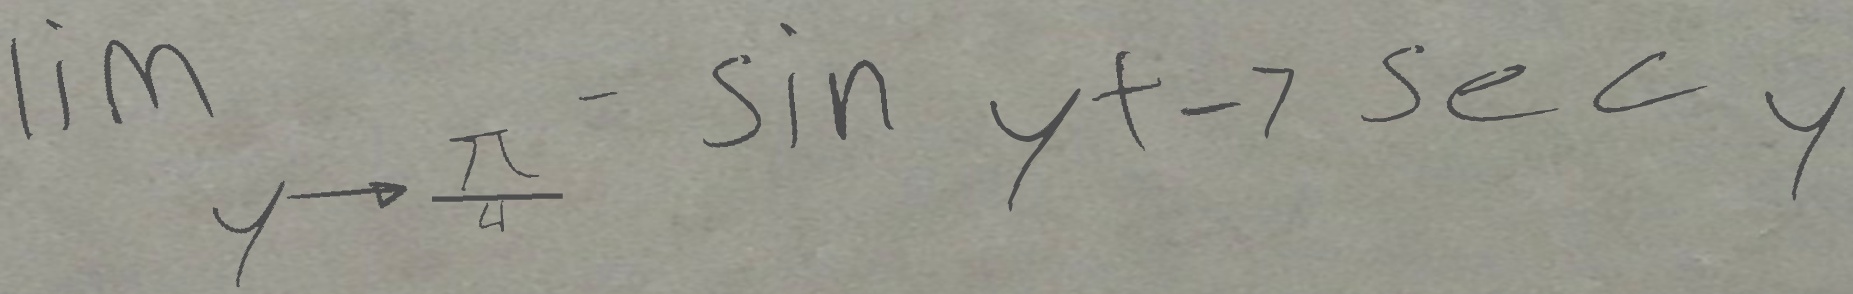 lim_{y→\frac{π}{4}} -sin y + -7 sec y